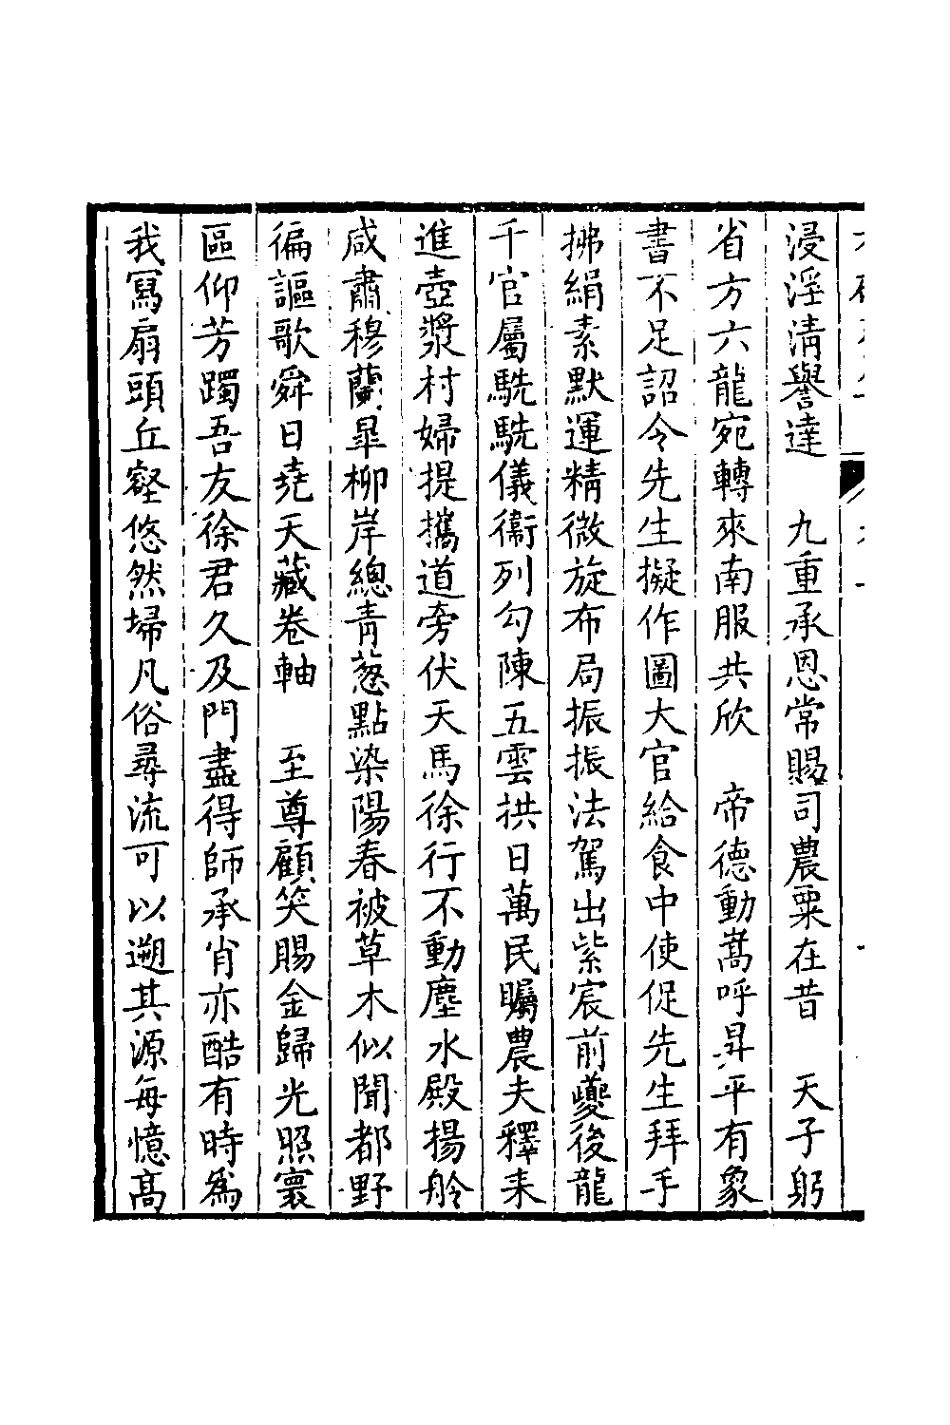 浸淫清譽達　九重承恩常賜司農粟在昔　天子躬
省方六龍宛轉來南服共欣　帝德動嵩呼昇平有象
書不足詔令先生擬作圖大官給食中使促先生拜手
拂絹素默運精微旋布局振振法駕出紫宸前夔後龍
千官屬駪駪儀衞列勾陳五雲拱日萬民矚農夫釋耒
進壺漿村婦提攜道旁伏天馬徐行不動塵水殿揚舲
咸肅穆蘭皐柳岸總青葱點染陽春被草木似聞都野
徧謳歌舜日堯天藏卷軸　至尊顧笑賜金歸光照寰
區仰芳躅吾友徐君久及門盡得師承肖亦酷有時爲
我冩扇頭丘壑悠然埽凡俗尋流可以遡其源每憶高